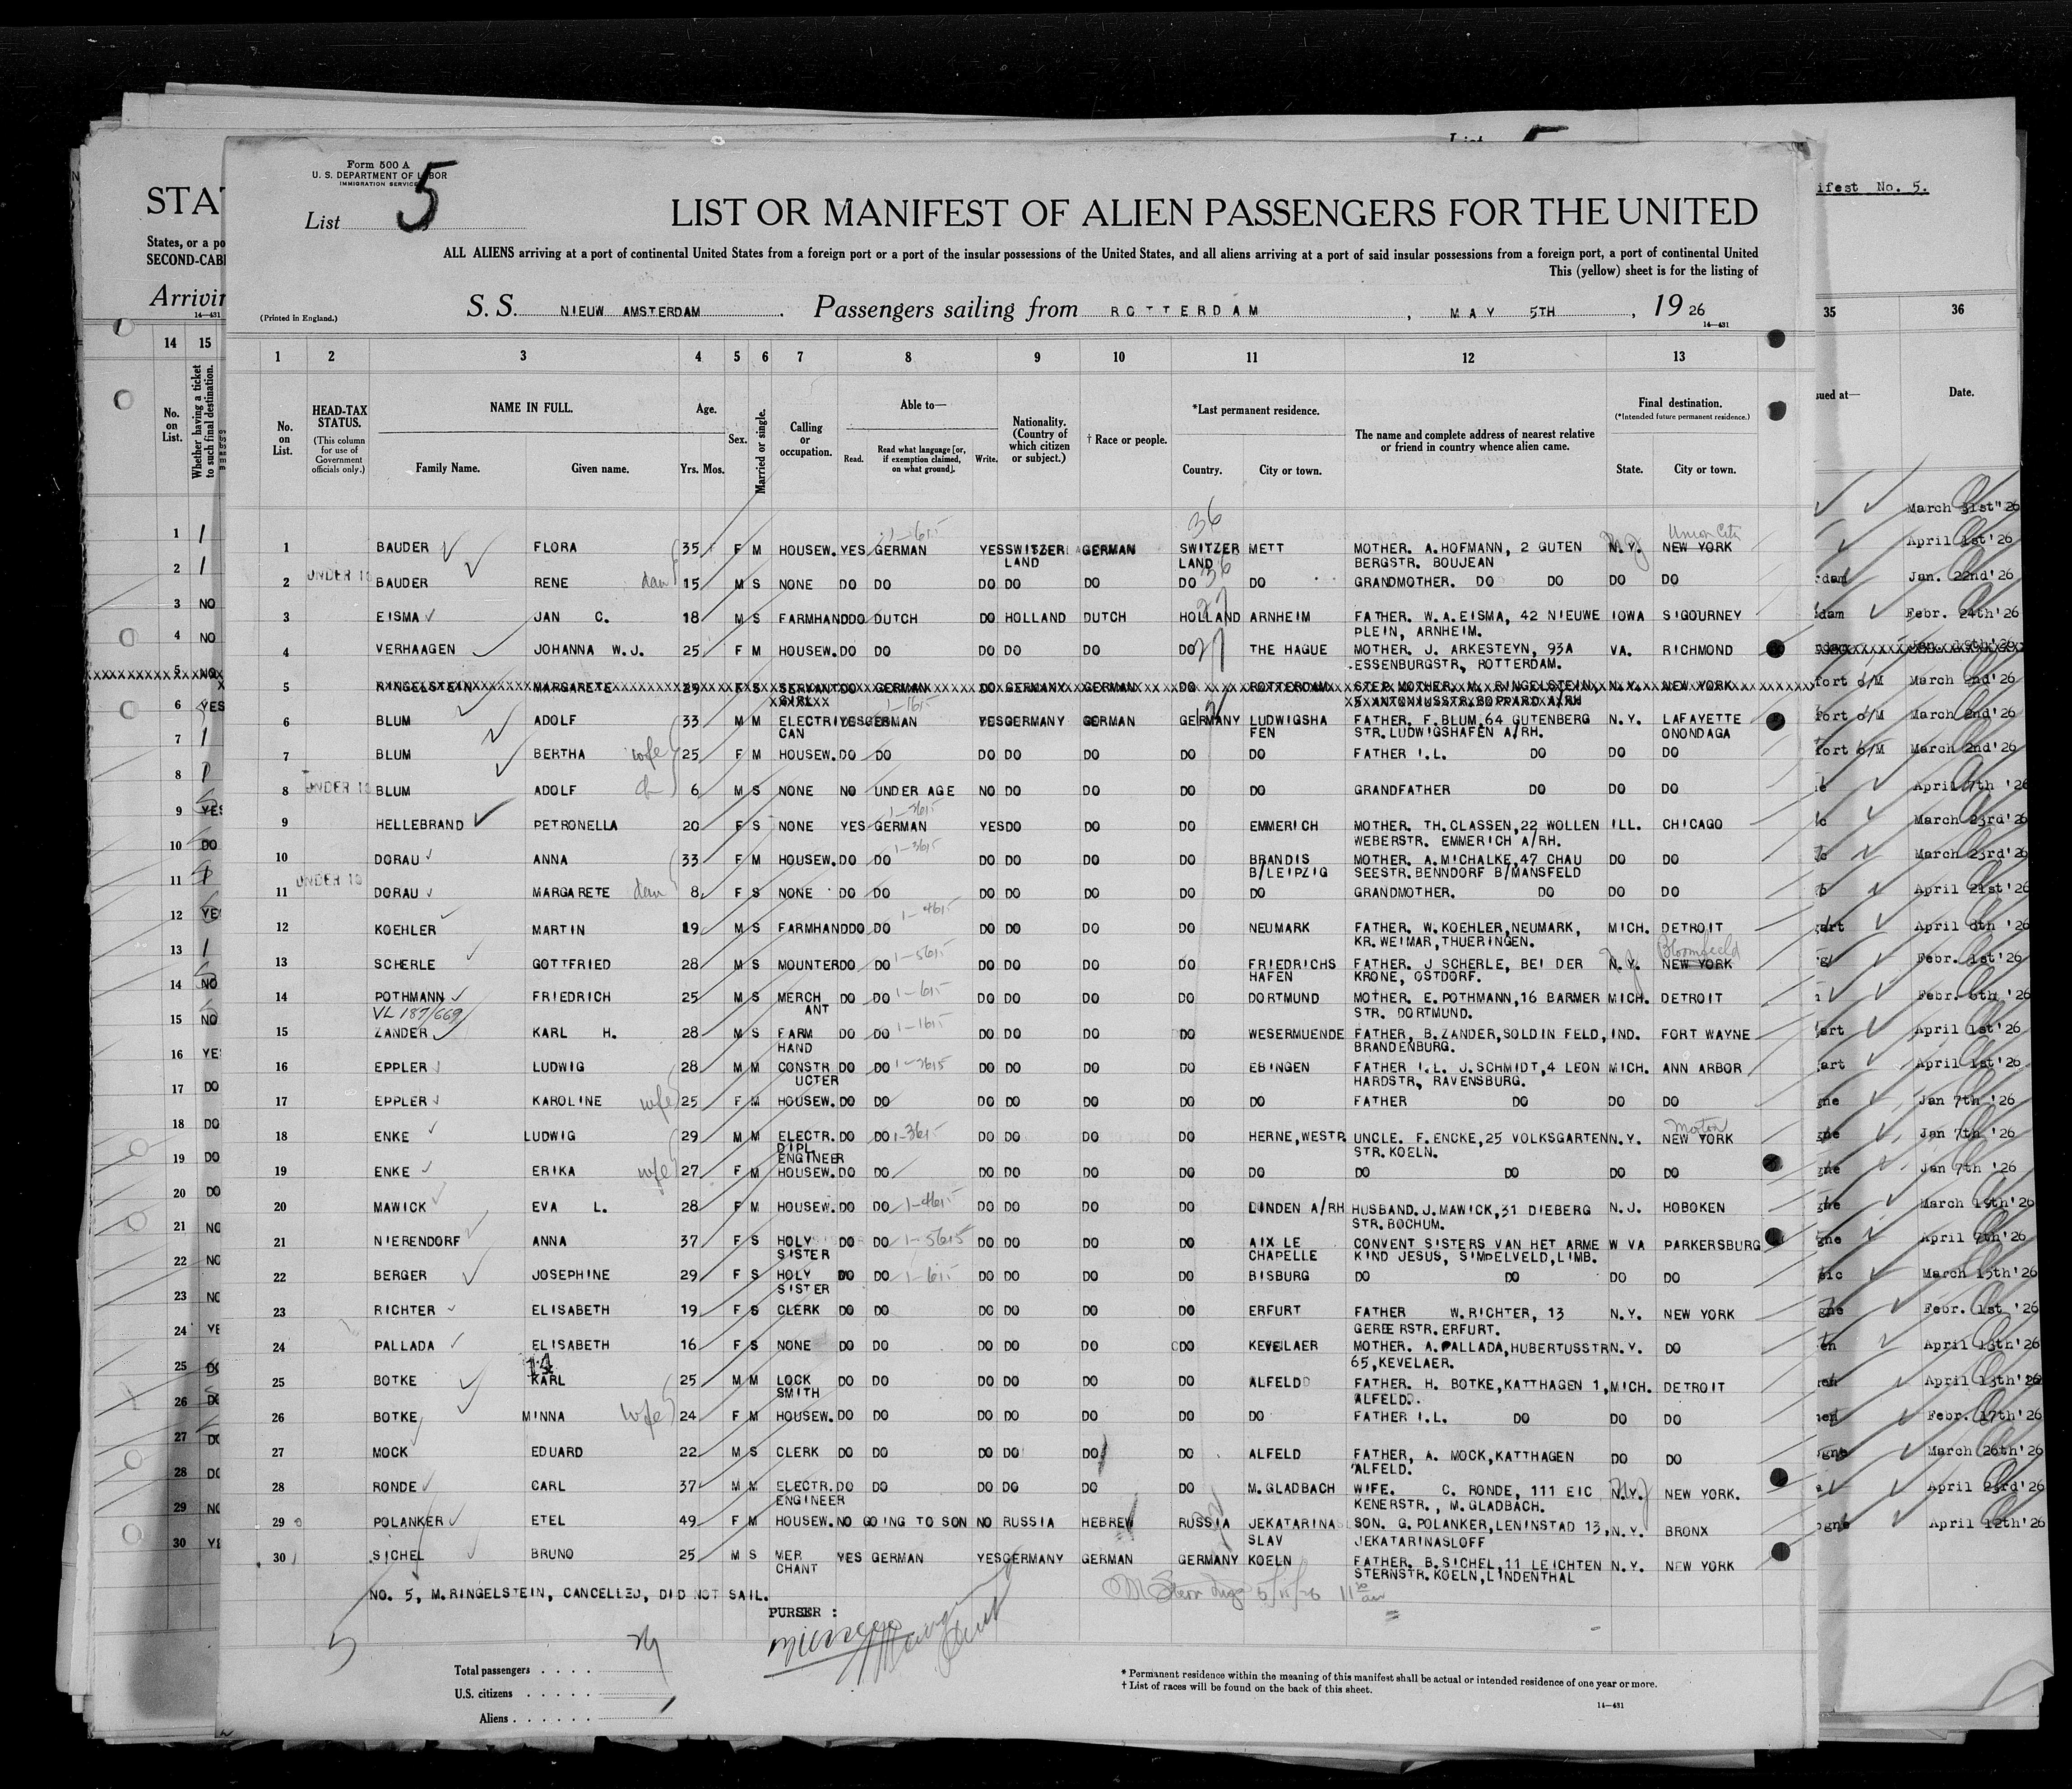 Form 500 A
U. S. DEPARTMENT OF LABOR
IMMIGRATION SERVICE
List 5
LIST OR MANIFEST OF ALIEN PASSENGERS FOR THE UNITED
ALL ALIENS arriving at a port of continental United States from a foreign port or a port of the insular possessions of the United States, and all aliens arriving at a port of said insular possessions from a foreign port, a port of continental United
This (yellow) sheet is for the listing of
(Printed in England.)
S. S. NIEUW AMSTERDAM. Passengers sailing from ROTTERDAM, MAY 5TH, 19 26
14—431
1 2 3 4 5 6 7 8 9 10 11 12 13
No. on List.
HEAD-TAX STATUS. (This column for use of Government officials only.)
NAME IN FULL.
Family Name. Given name.
Age.
Yrs. Mos.
Sex.
Married or single.
Calling or occupation.
Able to—
Read. Read what language [or, if exemption claimed, on what ground]. Write.
Nationality. (Country of which citizen or subject.)
† Race or people.
*Last permanent residence.
Country. City or town.
The name and complete address of nearest relative or friend in country whence alien came.
Final destination.
(*Intended future permanent residence.)
State. City or town.
36
Union City
1 BAUDER FLORA 35 F M HOUSEW. YES GERMAN YES SWITZER GERMAN SWITZER METT MOTHER. A. HOFMANN, 2 GUTEN N.Y. NEW YORK
LAND LAND BERGSTR. BOUJEAN
2 UNDER 16 BAUDER RENE 15 M S NONE DO DO DO DO DO DO DO GRANDMOTHER. DO DO DO DO
3 EISMA JAN C. 18 M S FARMHAND DO DUTCH DO HOLLAND DUTCH HOLLAND ARNHEIM FATHER. W.A. EISMA, 42 NIEUWE IOWA SIGOURNEY
PLEIN, ARNHEIM.
4 VERHAAGEN JOHANNA W.J. 25 F M HOUSEW. DO DO DO DO DO DO THE HAGUE MOTHER. J. ARKESTEYN, 93A VA. RICHMOND
ESSENBURGSTR, ROTTERDAM.
5 RINGELSTEIN MARGARETE 29 F S SERVANT DO GERMAN DO GERMANY GERMAN DO ROTTERDAM STEP MOTHER. M. RINGELSTEIN, N.Y. NEW YORK
GIRL 5 ANTONIUSSTR. BOPPARD A/RH
6 BLUM ADOLF 33 M M ELECTRI YES GERMAN YES GERMANY GERMAN GERMANY LUDWIGSHA FATHER. F. BLUM, 64 GUTENBERG N.Y. LAFAYETTE
CAN FEN STR. LUDWIGSHAFEN A/RH. ONONDAGA
7 BLUM BERTHA wife 25 F M HOUSEW. DO DO DO DO DO DO DO FATHER I.L. DO DO DO
8 BLUM ADOLF 6 M S NONE NO UNDER AGE NO DO DO DO DO GRANDFATHER DO DO DO
9 HELLEBRAND PETRONELLA 20 F S NONE YES GERMAN YES DO DO DO EMMERICH MOTHER. TH. CLASSEN, 22 WOLLEN ILL. CHICAGO
WEBERSTR. EMMERICH A/RH.
10 DORAU ANNA 33 F M HOUSEW. DO DO DO DO DO DO BRANDIS MOTHER. A. MICHALKE, 47 CHAU DO DO
B/LEIPZIG SEESTR. BENNDORF B/MANSFELD
11 DORAU MARGARETE dau 8 F S NONE DO DO DO DO DO DO DO GRANDMOTHER. DO DO DO
12 KOEHLER MARTIN 19 M S FARMHAND DO DO DO DO DO DO NEUMARK FATHER. W. KOEHLER, NEUMARK, MICH. DETROIT
KR. WEIMAR, THUERINGEN.
Bloomfield
13 SCHERLE GOTTFRIED 28 M S MOUNTER DO DO DO DO DO DO FRIEDRICHS FATHER. J SCHERLE, BEI DER N.Y. NEW YORK
HAFEN KRONE, OSTDORF.
14 POTHMANN FRIEDRICH 25 M S MERCH DO DO DO DO DO DO DORTMUND MOTHER. E. POTHMANN, 16 BARMER MICH. DETROIT
ANT STR. DORTMUND.
VL 187/669
15 ZANDER KARL H. 28 M S FARM DO DO DO DO DO DO WESERMUENDE FATHER, B. ZANDER, SOLDIN FELD, IND. FORT WAYNE
HAND BRANDENBURG.
16 EPPLER LUDWIG 28 M M CONSTR DO DO DO DO DO DO EBINGEN FATHER I.L. J. SCHMIDT, 4 LEON MICH. ANN ARBOR
UCTER HARDSTR, RAVENSBURG.
17 EPPLER KAROLINE wife 25 F M HOUSEW. DO DO DO DO DO DO DO FATHER DO DO DO
18 ENKE LUDWIG 29 M M ELECTR. DO DO DO DO DO DO HERNE, WESTP. UNCLE. F. ENCKE, 25 VOLKSGARTEN N.Y. NEW YORK
DIPL. ENGINEER STR. KOELN.
19 ENKE ERIKA wife 27 F M HOUSEW. DO DO DO DO DO DO DO DO DO DO DO
20 MAWICK EVA L. 28 F M HOUSEW. DO DO DO DO DO DO LINDEN A/RH HUSBAND. J. MAWICK, 31 DIEBERG N.J. HOBOKEN
STR. BOCHUM.
21 NIERENDORF ANNA 37 F S HOLY DO DO DO DO DO DO AIX LE CONVENT SISTERS VAN HET ARME W VA PARKERSBURG
SISTER CHAPELLE KIND JESUS, SIMPELVELD, LIMB.
22 BERGER JOSEPHINE 29 F S HOLY DO DO DO DO DO DO BISBURG DO DO DO DO
SISTER
23 RICHTER ELISABETH 19 F S CLERK DO DO DO DO DO DO ERFURT FATHER W. RICHTER, 13 N.Y. NEW YORK
GERBERSTR. ERFURT.
24 PALLADA ELISABETH 16 F S NONE DO DO DO DO DO DO KEVELAER MOTHER. A. PALLADA, HUBERTUSSTR N.Y. DO
65, KEVELAER.
25 BOTKE KARL 25 M M LOCK DO DO DO DO DO DO ALFELD FATHER. H. BOTKE, KATTHAGEN 1, MICH. DETROIT
SMITH ALFELD.
26 BOTKE MINNA wife 24 F M HOUSEW. DO DO DO DO DO DO DO FATHER I.L. DO DO DO
27 MOCK EDUARD 22 M S CLERK DO DO DO DO DO DO ALFELD FATHER, A. MOCK, KATTHAGEN DO DO
ALFELD.
28 RONDE CARL 37 M M ELECTR. DO DO DO DO DO DO M. GLADBACH WIFE. C. RONDE, 111 EIC N.Y. NEW YORK.
ENGINEER KENERSTR., M. GLADBACH.
29 POLANKER ETEL 49 F M HOUSEW. NO GOING TO SON NO RUSSIA HEBREW RUSSIA JEKATARINA SON. G. POLANKER, LENINSTAD 13, N.Y. BRONX
SLAV JEKATARINASLOFF
30 SICHEL BRUNO 25 M S MER YES GERMAN YES GERMANY GERMAN GERMANY KOELN FATHER. B. SICHEL, 11 LEICHTEN N.Y. NEW YORK
CHANT STERNSTR. KOELN, LINDENTHAL
NO. 5, M. RINGELSTEIN, CANCELLED, DID NOT SAIL.
PURSER :
Total passengers
U.S. citizens
Aliens
* Permanent residence within the meaning of this manifest shall be actual or intended residence of one year or more.
† List of races will be found on the back of this sheet.
14—431
STA
States, or a po
SECOND-CABI
Arrivin
14—431
14 15
No. on List.
Whether having a ticket to such final destination.
ifest No. 5.
35 36
sued at— Date.
March 31st" 26
April 1st'26
Jan. 22nd'26
Febr. 24th'26
fort o/M March 2nd'26
fort o/M March 2nd'26
fort o/M March 2nd'26
April 7th '26
March 23rd'26
March 23rd'26
April 21st'26
April 6th '26
Febr. 1st'26
Febr. 6th '26
April 1st'26
April 1st'26
Jan 7th '26
Jan 7th '26
Jan 7th '26
March 19th'26
April 9th'26
March 15th'26
Febr. 1st '26
April 13th'26
April 13th'26
Febr. 17th'26
March 26th'26
April 23rd'26
April 12th'26